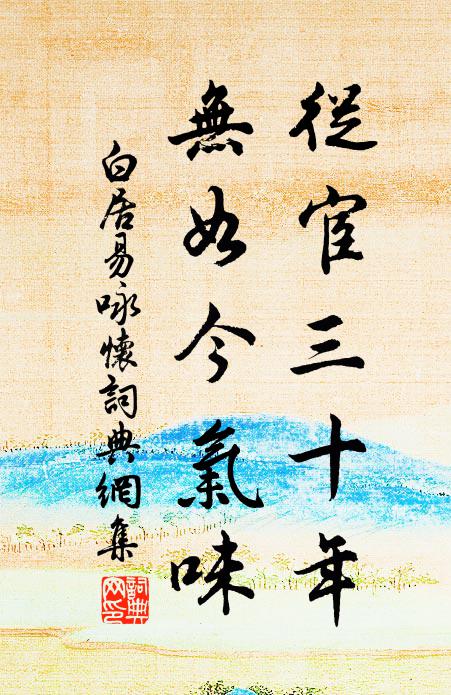 從宦三十年
無如今氣味
白居易咏懷詞典網集
詞典网印